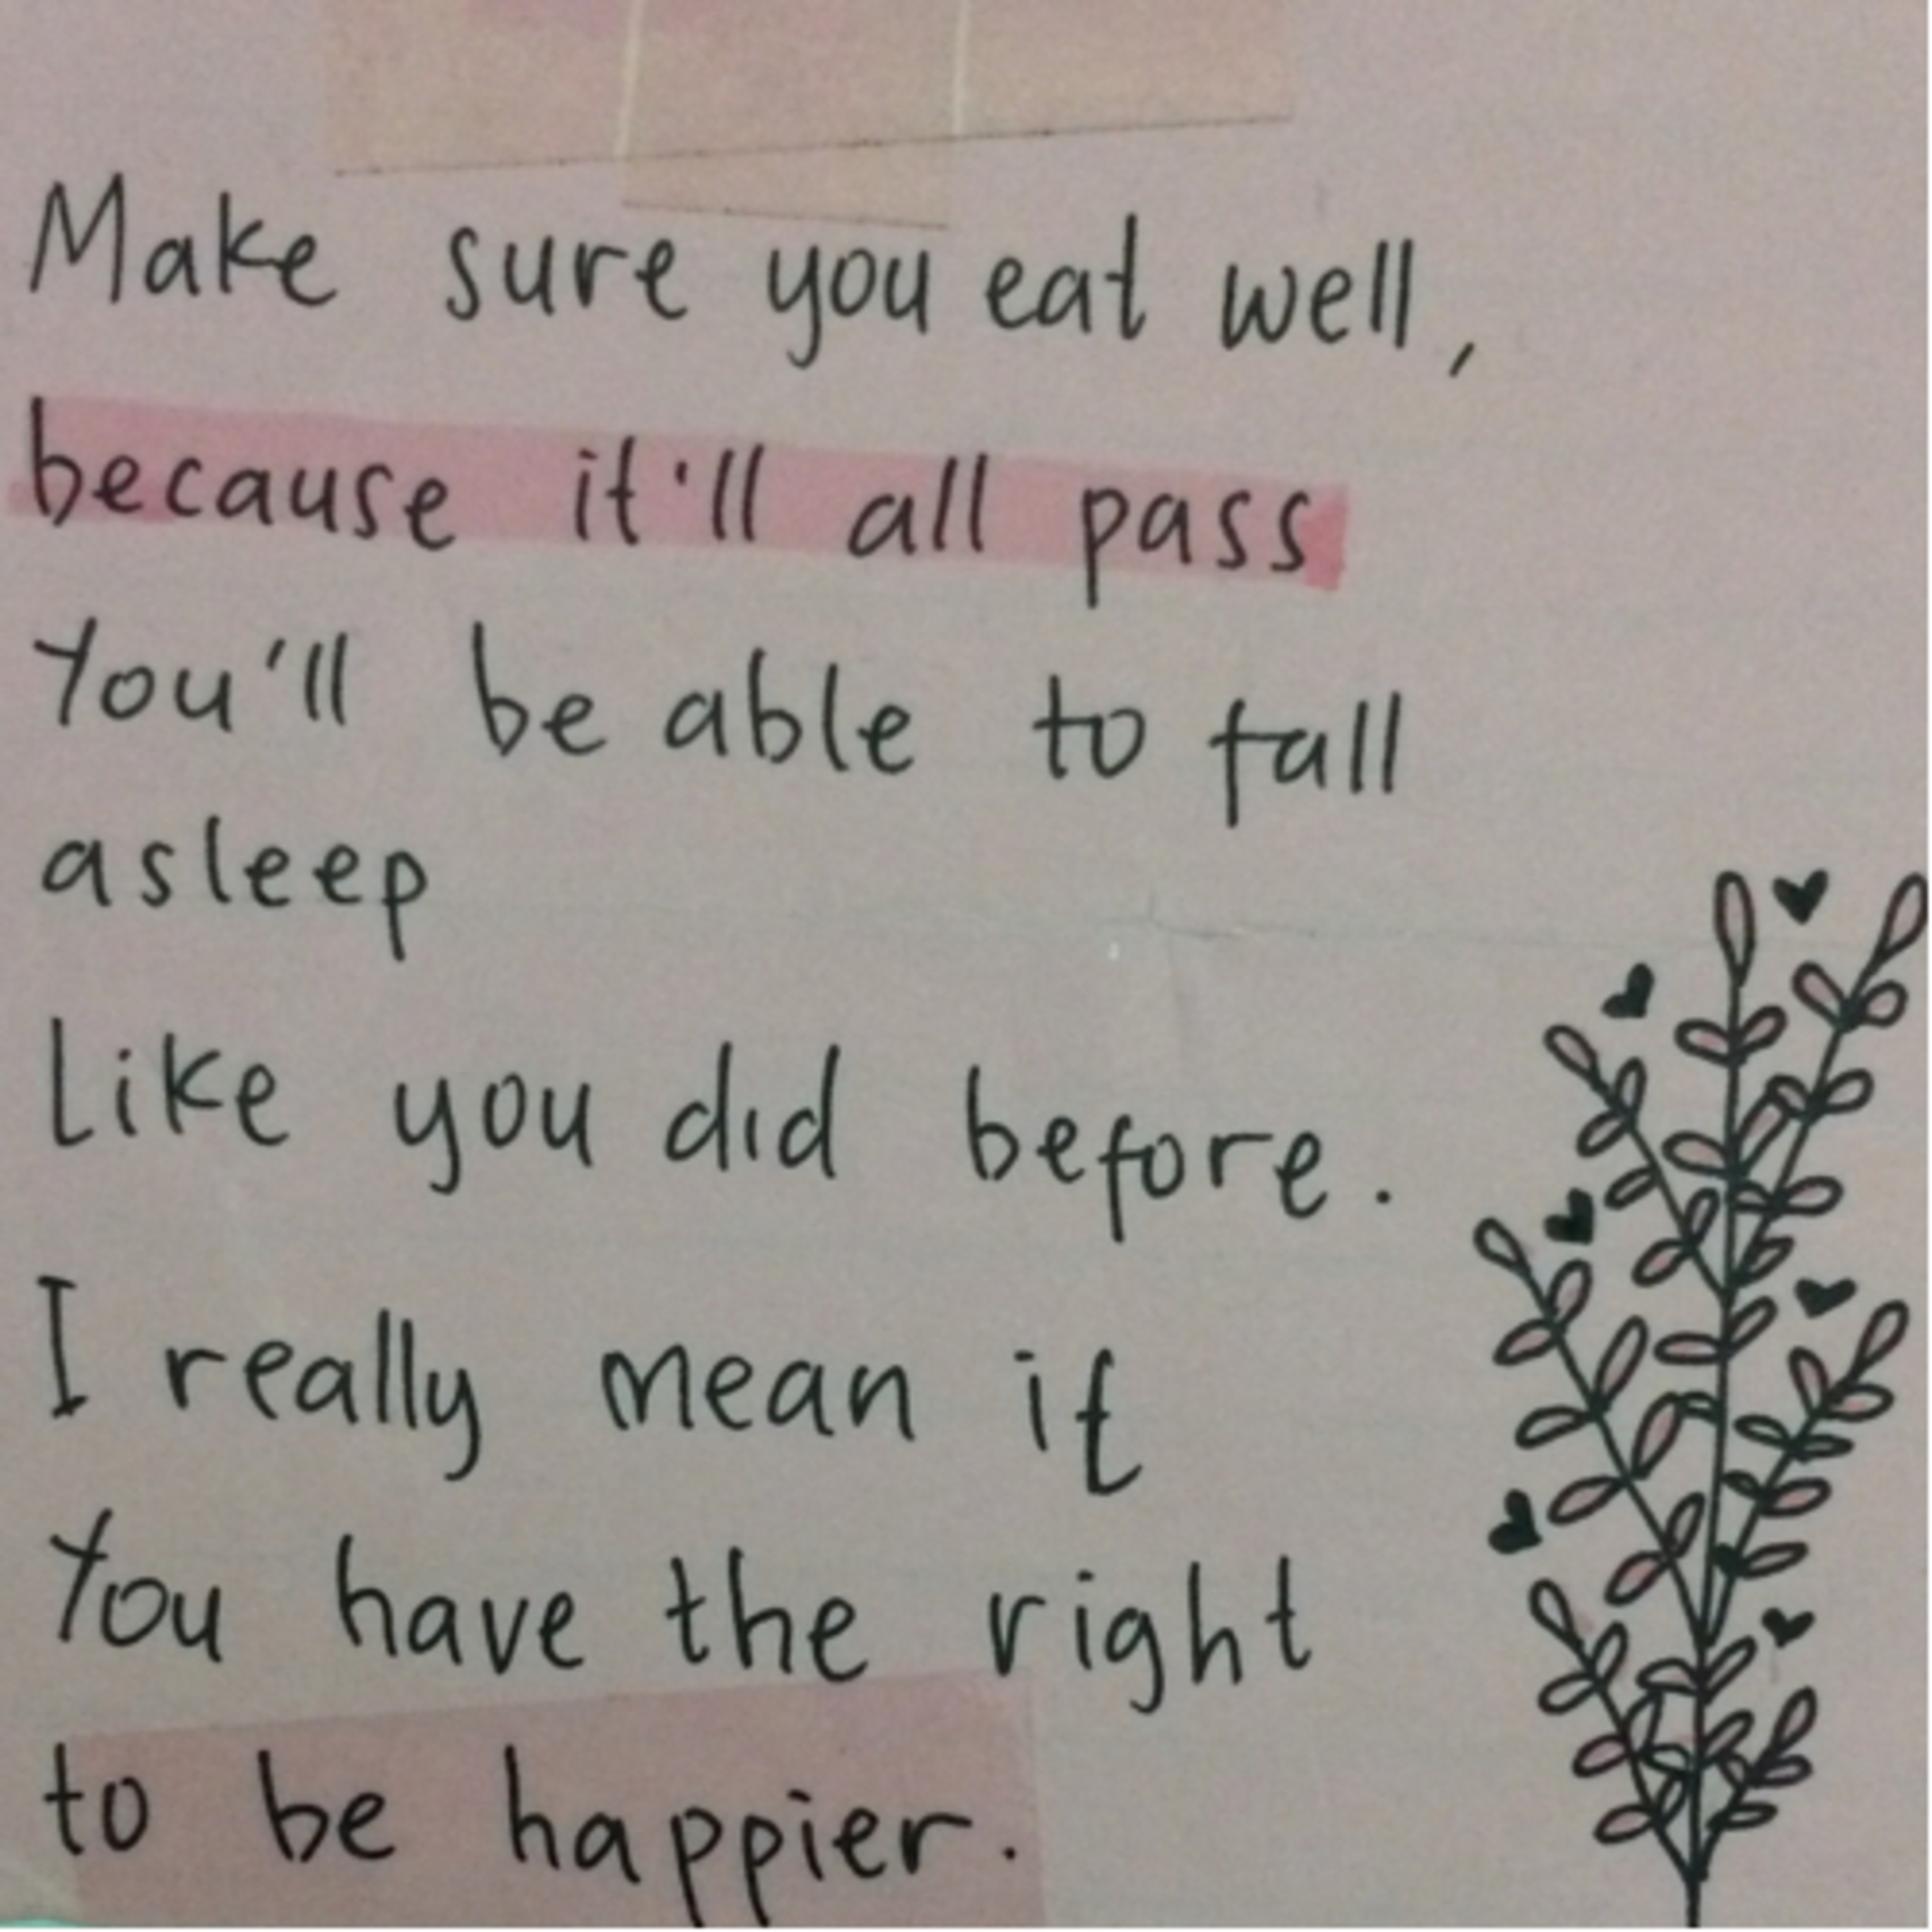 Make sure you eat well,
because it'll all pass
You'll be able to fall
asleep
Like you did before.
I really mean it
You have the right
to be happier.